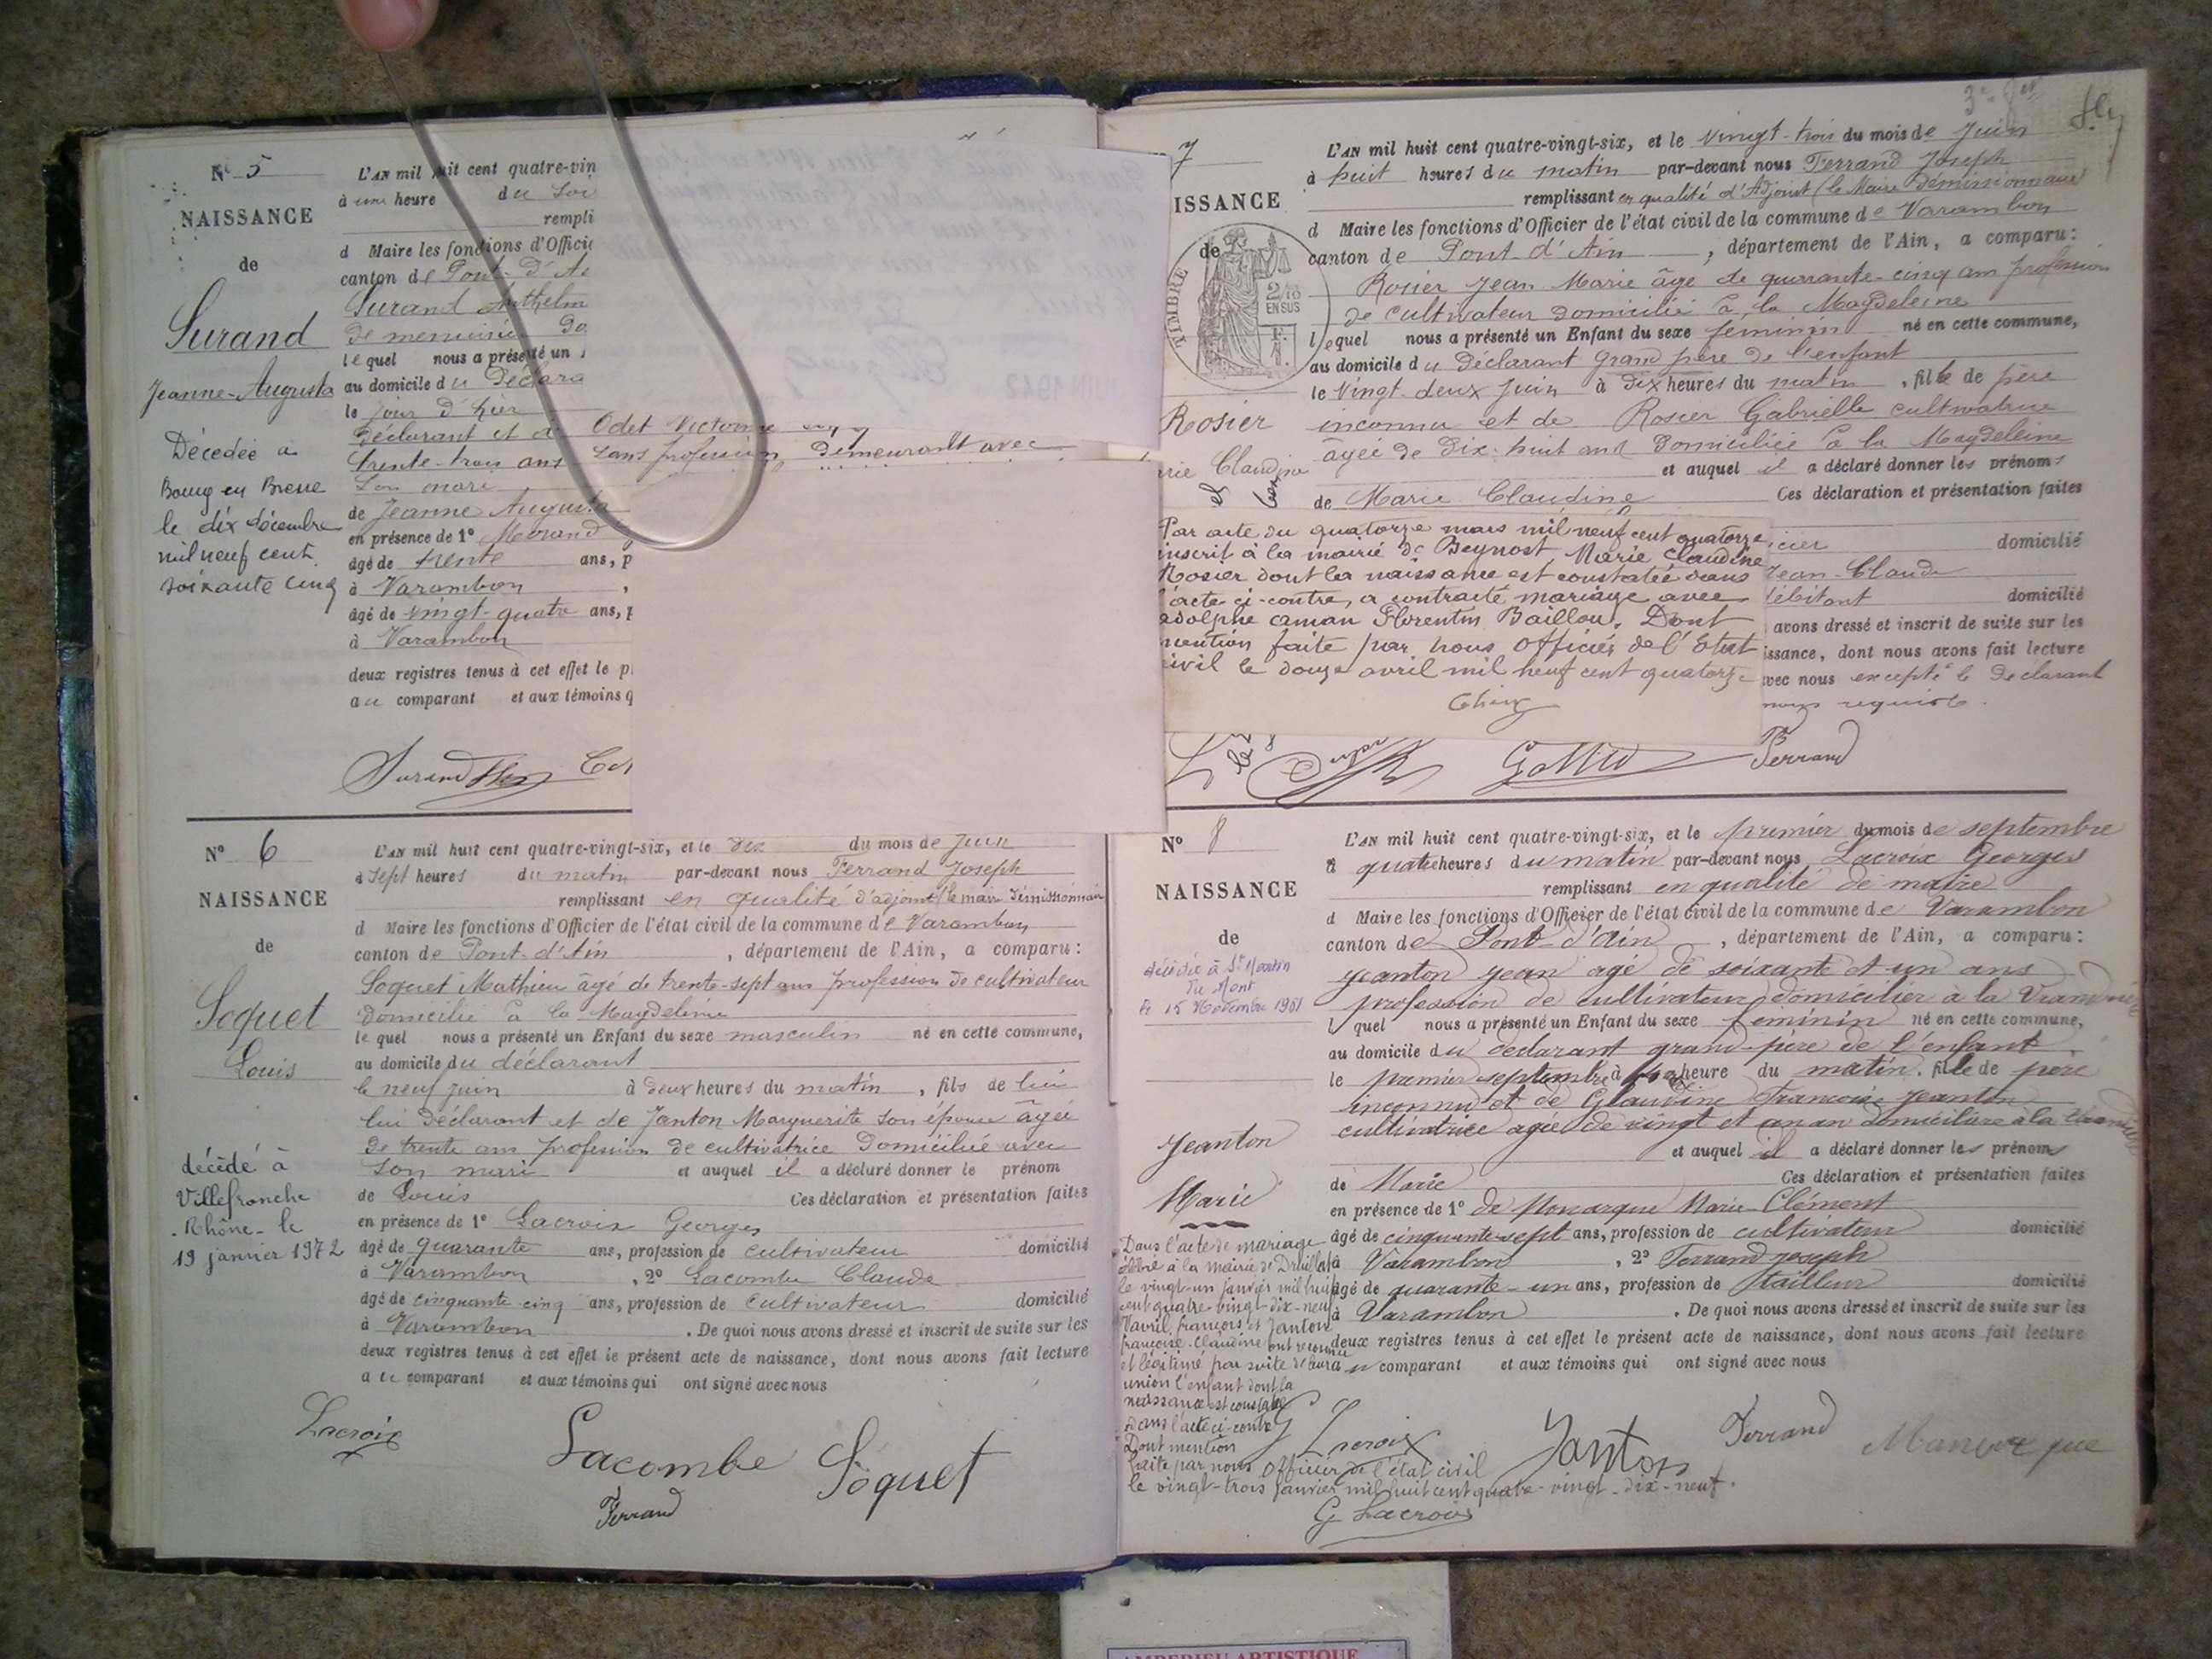 Nº 5
NAISSANCE
de
Surand
Jeanne-Augusta
Décédée à
Bourg en Bresse
le dix décembre
mil neuf cent
soixante cinq
L'AN mil huit cent quatre-vin
à une heure du soi
rempli
d Maire les fonctions d'Offici
canton de Pont-d'A
Surand Anthelm
de menuisier do
lequel nous a présenté un
au domicile du Déclara
le jour d'hier
Déclarant et d Odet Victorine
trente-trois ans sans profession, demeurant avec
son mari
de Jeanne Augusta
en présence de 1º Morand
âgé de trente ans, p
à Varambon ,
âgé de vingt-quatre ans, p
à Varambon
deux registres tenus à cet effet le p
au comparant et aux témoins q
Surand
Nº 6
NAISSANCE
de
Soquet
Louis
décédé à
Villefranche
-Rhône- le
19 janvier 1972
L'AN mil huit cent quatre-vingt-six, et le dix du mois de Juin
à sept heures du matin par-devant nous Ferrand Joseph
remplissant en qualité d'adjoint (le maire démissionnaire
d Maire les fonctions d'Officier de l'état civil de la commune de Varambon
canton de Pont-d'Ain , département de l'Ain, a comparu:
Soquet Mathieu âgé de trente-sept ans profession de cultivateur
domicilié à la Magdeleine
lequel nous a présenté un Enfant du sexe masculin né en cette commune,
au domicile du déclarant
le neuf juin à deux heures du matin , fils de lui
lui déclarant et de Janton Marguerite son épouse âgée
de trente ans profession de cultivatrice domiciliée avec
son mari et auquel il a déclaré donner le prénom
de Louis Ces déclaration et présentation faites
en présence de 1º Lacroix Georges
âgé de quarante ans, profession de cultivateur domicilié
à Varambon , 2º Lacombe Claude
âgé de cinquante-cinq ans, profession de cultivateur domicilié
à Varambon . De quoi nous avons dressé et inscrit de suite sur les
deux registres tenus à cet effet le présent acte de naissance, dont nous avons fait lecture
au comparant et aux témoins qui ont signé avec nous
Lacroix
Lacombe Soquet
Ferrand
7
ISSANCE
de
TIMBRE
2/10
EN SUS
Rosier
rie Claudine
L'AN mil huit cent quatre-vingt-six, et le vingt-trois du mois de Juin
à huit heures du matin par-devant nous Ferrand Joseph
remplissant en qualité d'Adjoint (le Maire démissionnaire)
d Maire les fonctions d'Officier de l'état civil de la commune de Varambon
canton de Pont-d'Ain , département de l'Ain, a comparu:
Rosier Jean Marie âgé de quarante-cinq ans profession
de cultivateur domicilié à la Magdeleine
lequel nous a présenté un Enfant du sexe féminin né en cette commune,
au domicile du Déclarant grand père de l'enfant
le vingt-deux Juin à dix heures du matin , fille de père
inconnu et de Rosier Gabrielle cultivatrice
âgée de dix-huit ans domiciliée à la Magdeleine
et auquel il a déclaré donner les prénoms
de Marie Claudine Ces déclaration et présentation faites
Par acte du quatorze mars mil neuf cent quatorze
inscrit à la mairie de Beynost, Marie Claudine
Rosier dont la naissance est constatée dans
l'acte ci-contre, a contracté mariage avec
adolphe caman Florentin Baillou. Dont
mention faite par nous officier de l'Etat
civil le douze avril mil neuf cent quatorze
icier domicilié
Jean-Claude
débitant domicilié
avons dressé et inscrit de suite sur les
issance, dont nous avons fait lecture
avec nous excepté le Déclarant
requis
Ferrand
Nº 8
NAISSANCE
de
décédée à St Martin
du Mont
le 15 Novembre 1961
Jeanton
Marie
Dans l'acte de mariage
célébré à la mairie de Druillat
le vingt-un janvier mil huit
cent quatre-vingt-dix-neuf
Vavril françois et Janton
françoise-Claudine ont reconnu
et légitimé par suite de leur
union l'enfant dont la
naissance est constatée
dans l'acte ci-contre
Dont mention
faite par nous officier de l'état civil
le vingt-trois Janvier mil huit cent quatre-vingt-dix-neuf.
G Lacroix
L'AN mil huit cent quatre-vingt-six, et le premier du mois de septembre
à quatre heures du matin par-devant nous Lacroix Georges
remplissant en qualité de maire
d Maire les fonctions d'Officier de l'état civil de la commune de Varambon
canton de Pont-d'Ain , département de l'Ain, a comparu:
Jeanton Jean agé de soixante et un ans
profession de cultivateur domicilier à la
lquel nous a présenté un Enfant du sexe féminin né en cette commune,
au domicile du déclarant grand-père de l'enfant
le premier septembre à heure du matin, fille de père
inconnu et de Glaudine Francoise Jeanton
cultivatrice agée de vingt et un an domicilière à la
et auquel il a déclaré donner les prénoms
de Marie Ces déclaration et présentation faites
en présence de 1º de Monarque Marie-Clément
âgé de cinquante-sept ans, profession de cultivateur domicilié
à Varambon , 2º Ferrand joseph
âgé de quarante-un ans, profession de tailleur domicilié
à Varambon . De quoi nous avons dressé et inscrit de suite sur les
deux registres tenus à cet effet le présent acte de naissance, dont nous avons fait lecture
au comparant et aux témoins qui ont signé avec nous
G Lacroix Janton Ferrand Manorque
AMBERIEU ARTISTIQUE